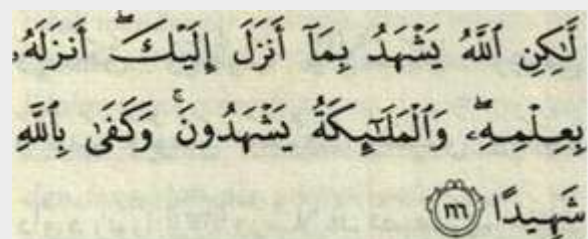 لَّٰكِنِ ٱللَّهُ يَشْهَدُ بِمَآ أَنزَلَ إِلَيْكَ ۖ أَنزَلَهُۥ
بِعِلْمِهِۦ ۖ وَٱلْمَلَٰٓئِكَةُ يَشْهَدُونَ ۚ وَكَفَىٰ بِٱللَّهِ
شَهِيدًا ١٦٦